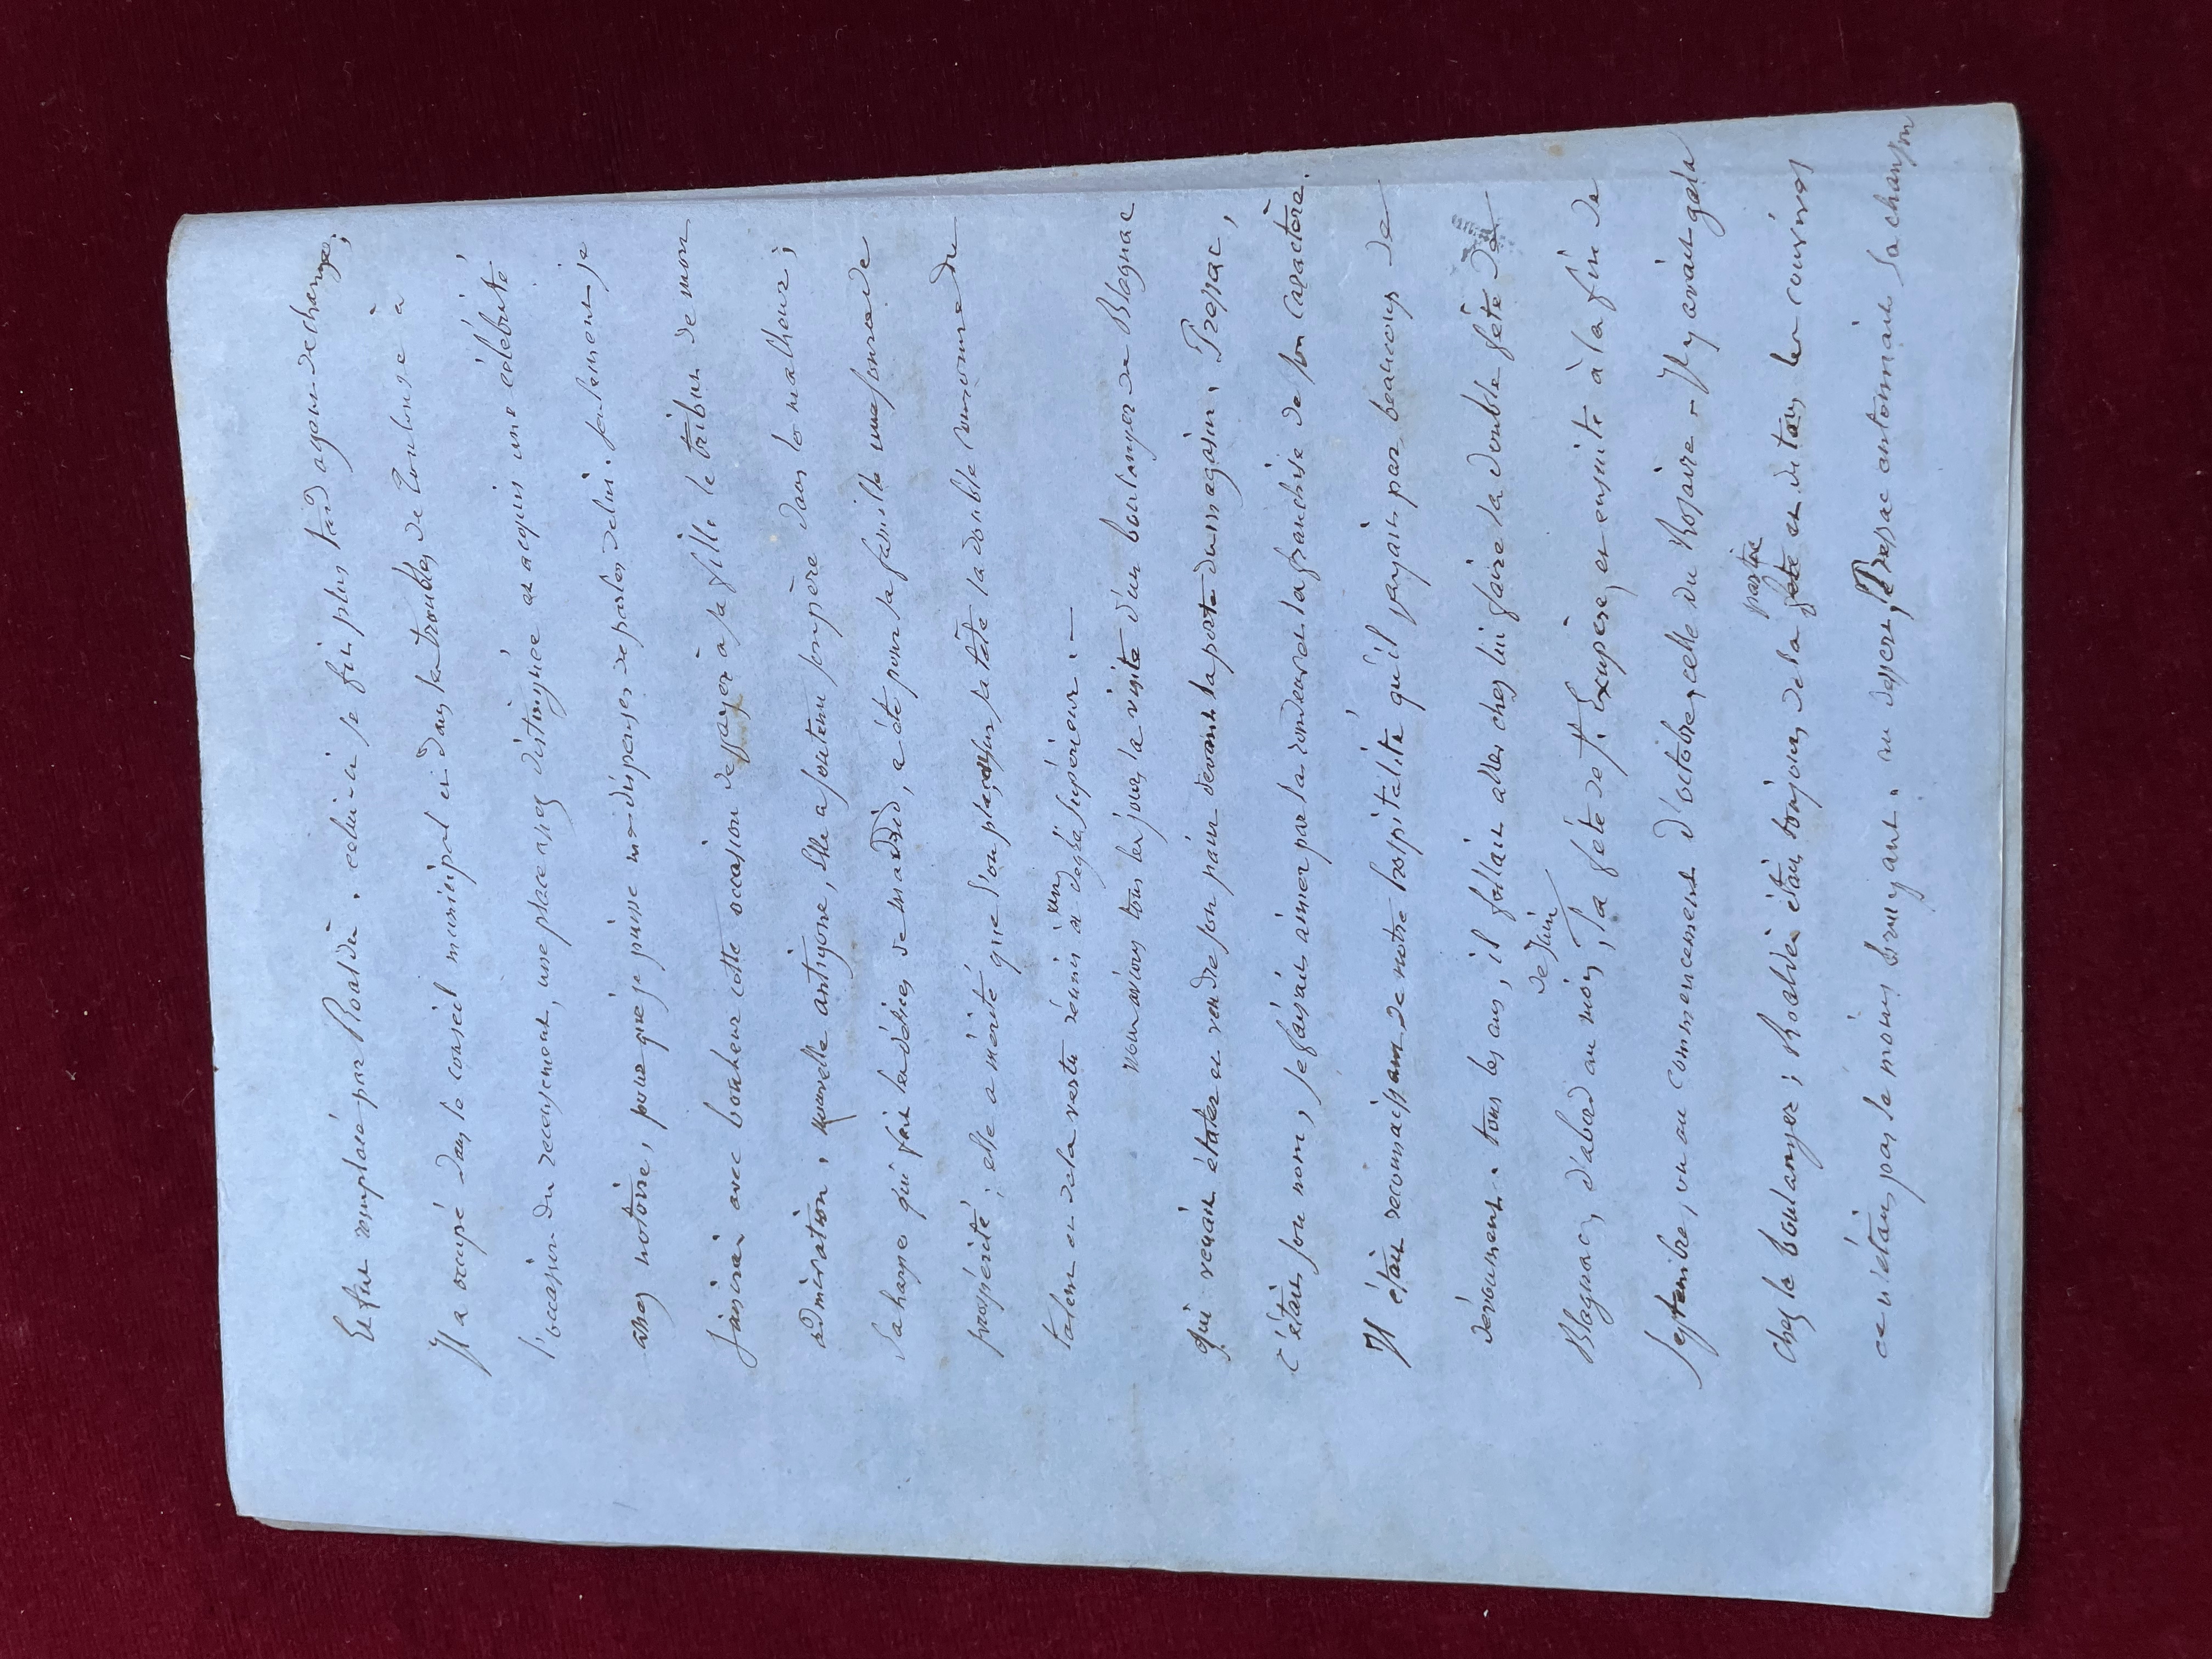 Et fut remplacé par Roaldès. celui-ci se fit plus tard agent de change;
Il a occupé dans le conseil municipal et dans les troubles de Toulouse à
l'occasion du recensement, une place assez distinguée et acquis une célébrité
assez notoire, pour que je puisse me dispenser de parler de lui. seulement je
saisirai avec bonheur cette occasion de payer à sa fille le tribut de mon
admiration, nouvelle antigone, Elle a soutenu son père dans le malheur;
Sa harpe qui fait les délices de madrid, a été pour sa famille une source de
prospérité; elle a mérité que l'on plaçat sur sa tête la double couronne du
talent et de la vertu réunis à un degré supérieur. —
nous avions tous les jours la visite d'un boulanger de Blagnac
qui venait étaler et vendre son pain devant la porte du magasin. Pressac,
c'était son nom, se faisait aimer par la rondeur et la franchise de son caractère.
Il était reconnaissant de notre hospitalité qu'il payait par beaucoup de
dévouement. tous les ans, il fallait aller chez lui faire la double fête de
Blagnac, d'abord au mois de Juin, la fête de St. Exupère, et ensuite à la fin de
Septembre, ou au commencement d'octobre, celle du Rosaire. Il y avait gala
chez le boulanger; Roaldès était toujours de la fete partie et de tous les convives
ce n'était pas le moins bruyant. au dessert, Pressac entonnait sa chanson